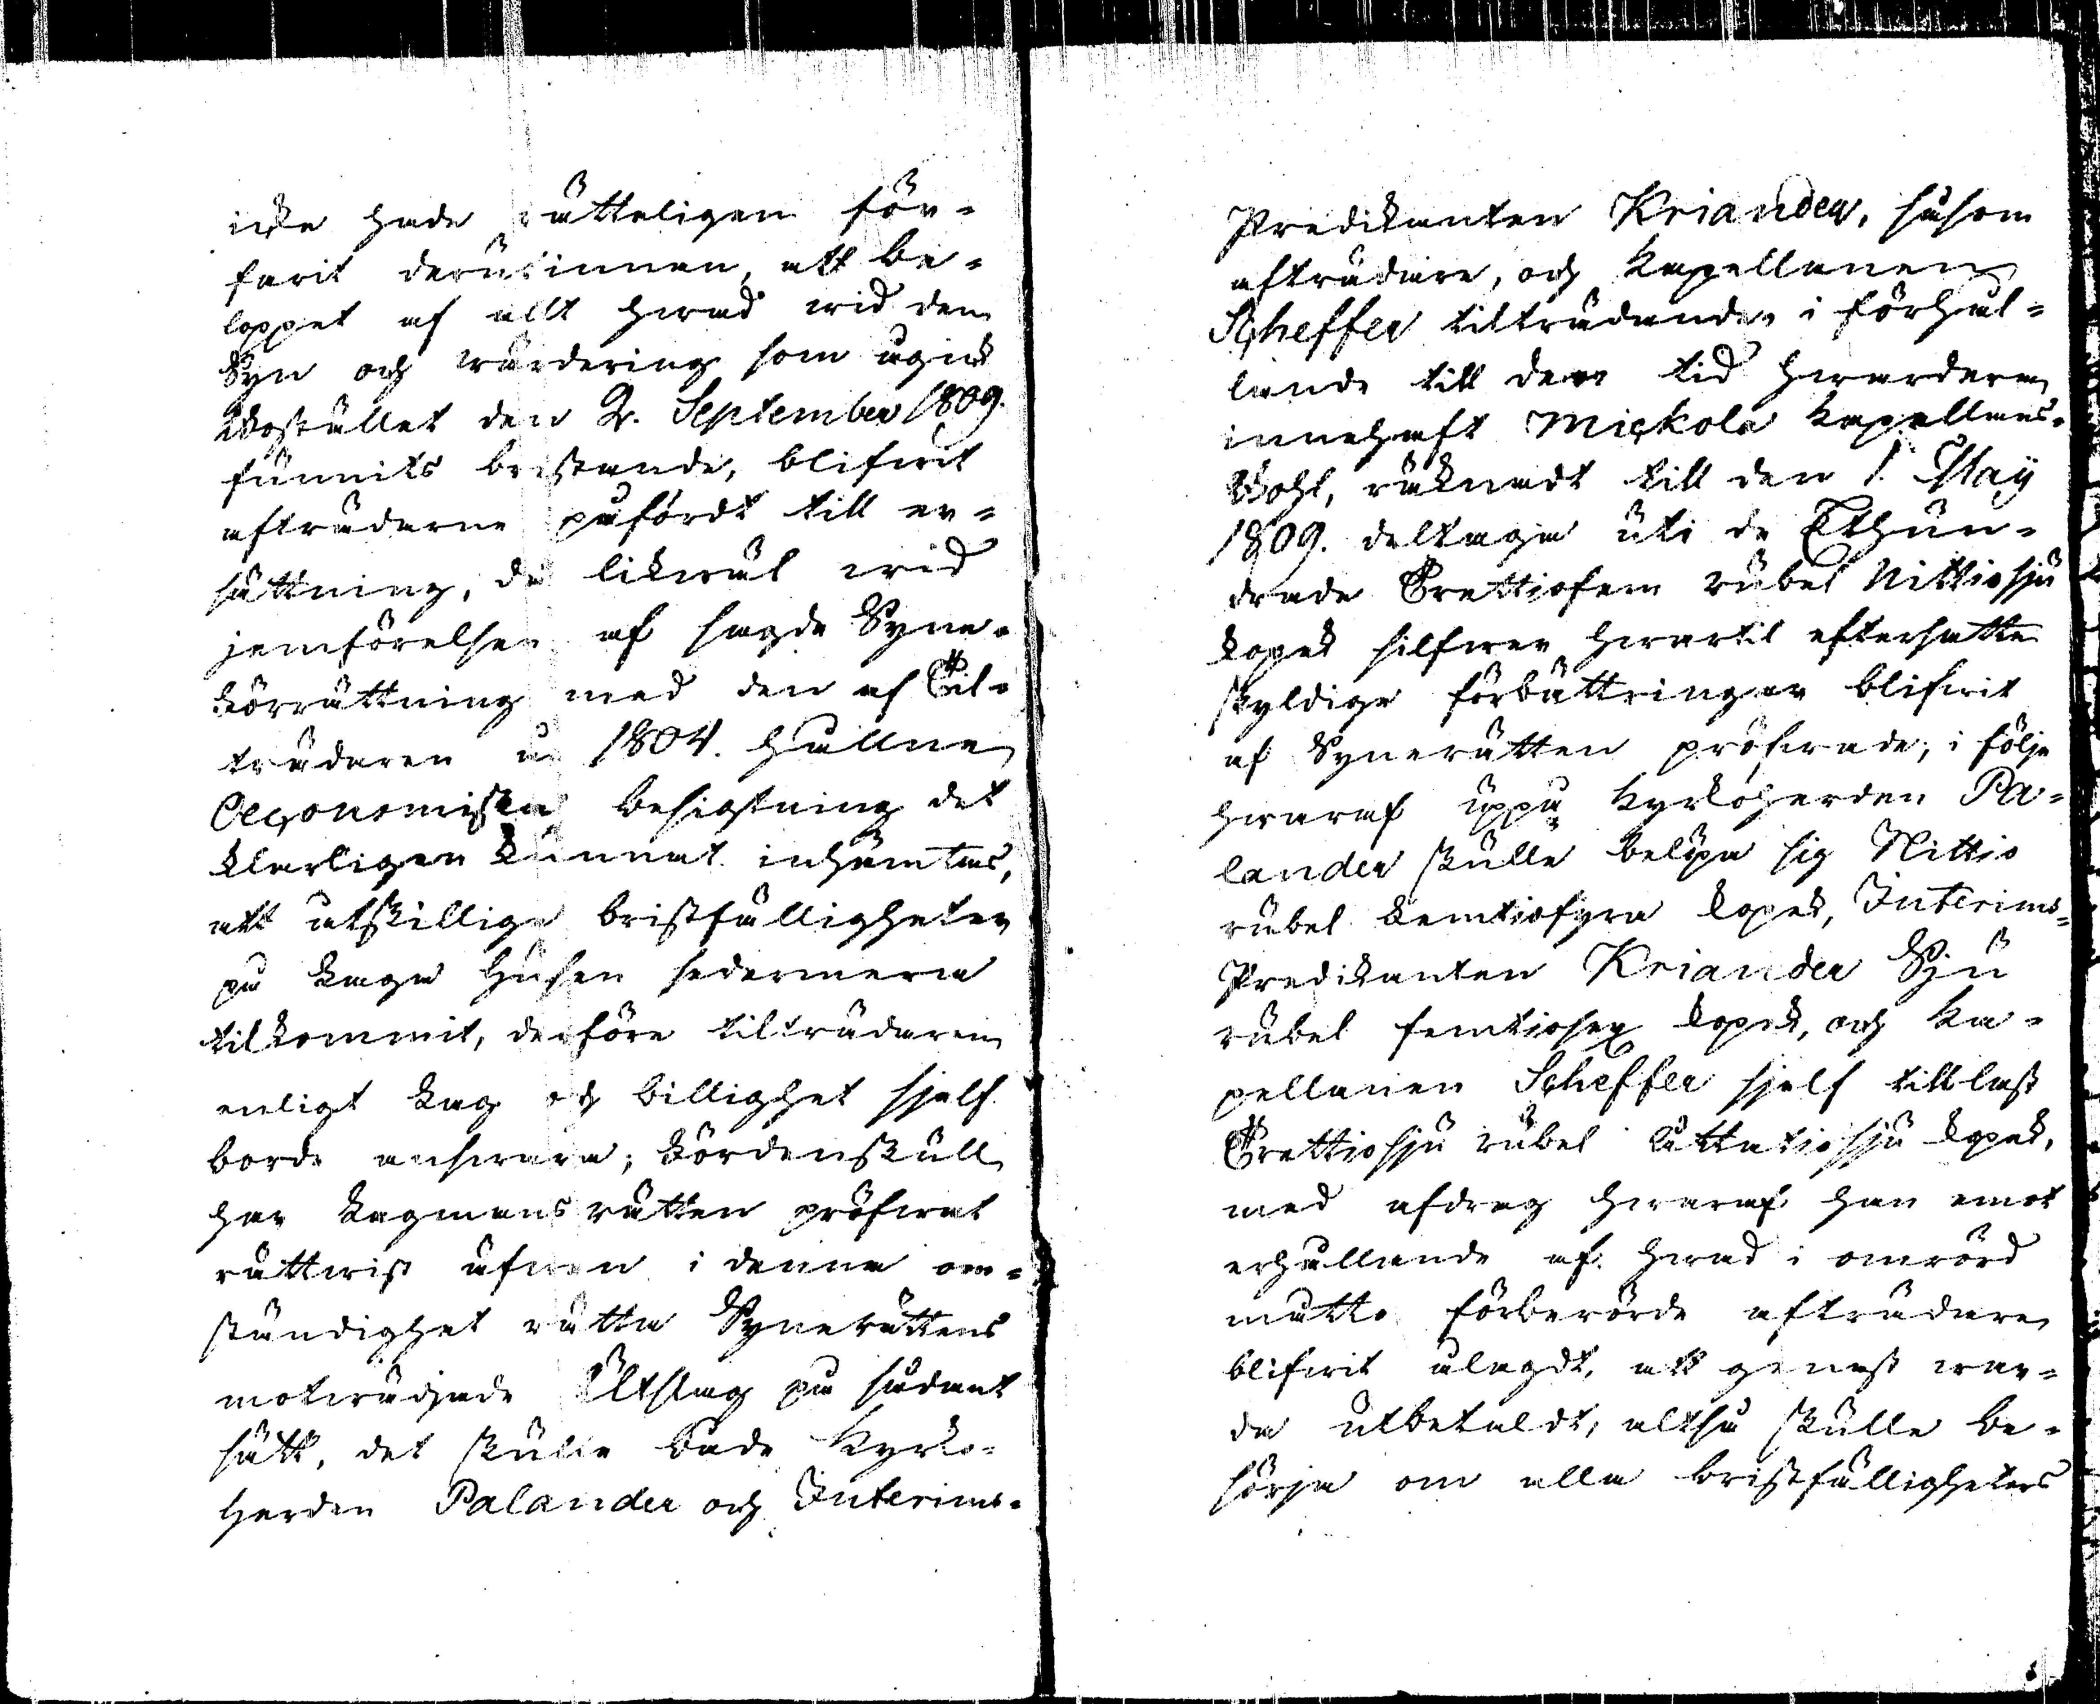 icke hade rätteligen för-
farit derutinnan, att be-
loppet af allt hwad wid den
Syn och wärdering som ägick
Bostället den 2. September 1809.
funnits bristande, blifwit
afträdarne påfördt till er-
sättning, då likwäl wid
jemförelsen af sagde Syne-
förrättning med den af Til-
trädaren år 1804. hållne
Oeconomiska besigtning det
klarligen kunnat inhämtas,
att utskillige bristfälligheter
på laga Husen sedermera
tilkommit, derföre tilträdaren
enligt Lag och billighet sjelf
borde answara; fördenskull
har Lagmansrätten pröfwat
rättwist äfwen i denna om-
ständighet rätta Synerättens
motwädjade Utslag på sådant
sätt, det skulle både Kyrko-
herden Palander och Interims-
Predikanten Kriander, såsom
afträdare, och Kapellanen
Scheffer tilträdande, i förhål-
lande till den tid hwardera
innehaft Mickola Kapellans-
Bohl, räknadt till den 1. Maÿ
1809. deltaga uti de Etthun-
drade Trettiofem rubel Nittiosju
kopek silfwer hwartil eftersatte
skyldige förbättringar blifwit
af Synerätten pröfwade, i följe
hwaraf uppå Kyrkoherden Pa-
lander skulle belöpa sig Nittio
rubel femtiofyra kopek, Interims-
Predikanten Kriander Sju
rubel femtiosex kopek, och Ka-
pellanen Scheffer sjelf till last
Trettiosju rubel åttatiosju kopek,
med afdrag hwaraf han emot
erhållande af hwad i omrörd
måtto förberörde afträdare
blifwit ålagdt, att genast war-
da utbetaldt, altså skulle be-
sörja om alla bristfälligheters